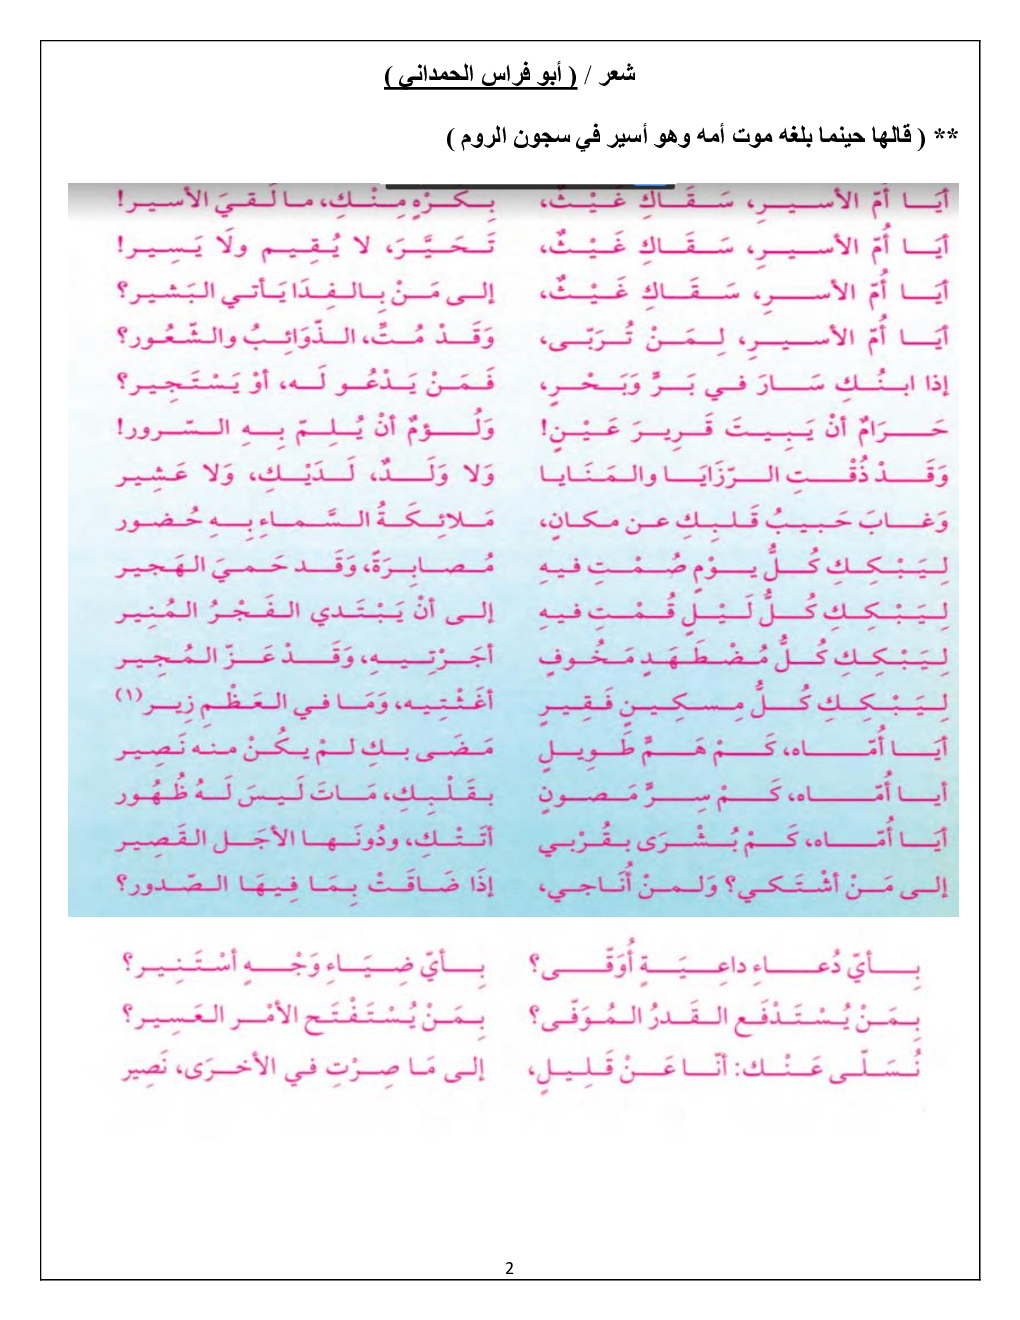 شعر / ( أبو فراس الحمداني )
** ( قالها حينما بلغه موت أمه وهو أسير في سجون الروم )
أيَا أُمّ الأسيرِ، سَقَاكِ غَيْثٌ، بِكُرْهٍ مِنْكِ، ما لَقيَ الأسير!
أيَا أُمّ الأسيرِ، سَقَاكِ غَيْثٌ، تَحَيَّرَ، لا يُقِيم ولَا يَسِير!
أيَا أُمّ الأسرِ، سَقَاكِ غَيْثٌ، إلى مَنْ بِالفِدَا يَأتي البَشير؟
أيَا أُمّ الأسيرِ، لِمَنْ تُرَبّى، وَقَدْ مُتِّ، الذّوَائِبُ والشّعُور؟
إذا ابنُكِ سَارَ في بَرٍّ وَبَحْرٍ، فَمَنْ يَدْعُو لَه، أوْ يَسْتَجِير؟
حَرَامٌ أنْ يَبِيتَ قَرِيرَ عَيْنٍ! وَلُؤمٌ أنْ يُلِمّ بِهِ السّرور!
وَقَدْ ذُقْتِ الرّزَايَا والمَنَايا وَلا وَلَدٌ، لَدَيْكِ، وَلا عَشِير
وَغابَ حَبيبُ قَلبِكِ عن مكانٍ، مَلائِكَةُ السَّماءِ بِهِ حُضور
لِيَبْكِكِ كُلُّ يوْمٍ صُمْتِ فيهِ مُصابِرَةً، وَقَد حَميَ الهَجير
لِيَبْكِكِ كُلُّ لَيْلٍ قُمْتِ فيهِ إلى أنْ يَبْتَدي الفَجْرُ المُنِير
لِيَبْكِكِ كُلُّ مُضْطَهَدٍ مَخُوفٍ أجَرْتِيهِ، وَقَدْ عَزّ المُجِير
لِيَبْكِكِ كُلُّ مِسكِينٍ فَقِيرٍ أغَثْتِيه، وَمَا في العَظْمِ زِير(١)
أيَا أُمّاه، كَمْ هَمٍّ طَوِيلٍ مَضَى بكِ لمْ يكُنْ منه نَصِير
أيا أُمّاه، كَمْ سِرٍّ مَصونٍ بقَلْبِكِ، مَاتَ لَيسَ لَهُ ظُهُور
أيَا أُمّاه، كَمْ بُشْرَى بقُرْبي أتَتْكِ، ودُونَها الأجَل القَصِير
إلى مَنْ أشْتَكي؟ وَلمنْ أُنَاجي، إذَا ضَاقَتْ بِمَا فِيهَا الصّدور؟
بِأيّ دُعاءِ داعِيَةٍ أُوَقّى؟ بِأيّ ضِيَاءِ وَجْهٍ أسْتَنِير؟
بِمَنْ يُسْتَدْفَع القَدرُ المُوَفّى؟ بِمَنْ يُسْتَفْتَح الأمْر العَسِير؟
نُسَلّى عَنْك: أنّا عَنْ قَلِيلٍ، إلى مَا صِرْتِ في الأخرَى، نَصِير
2